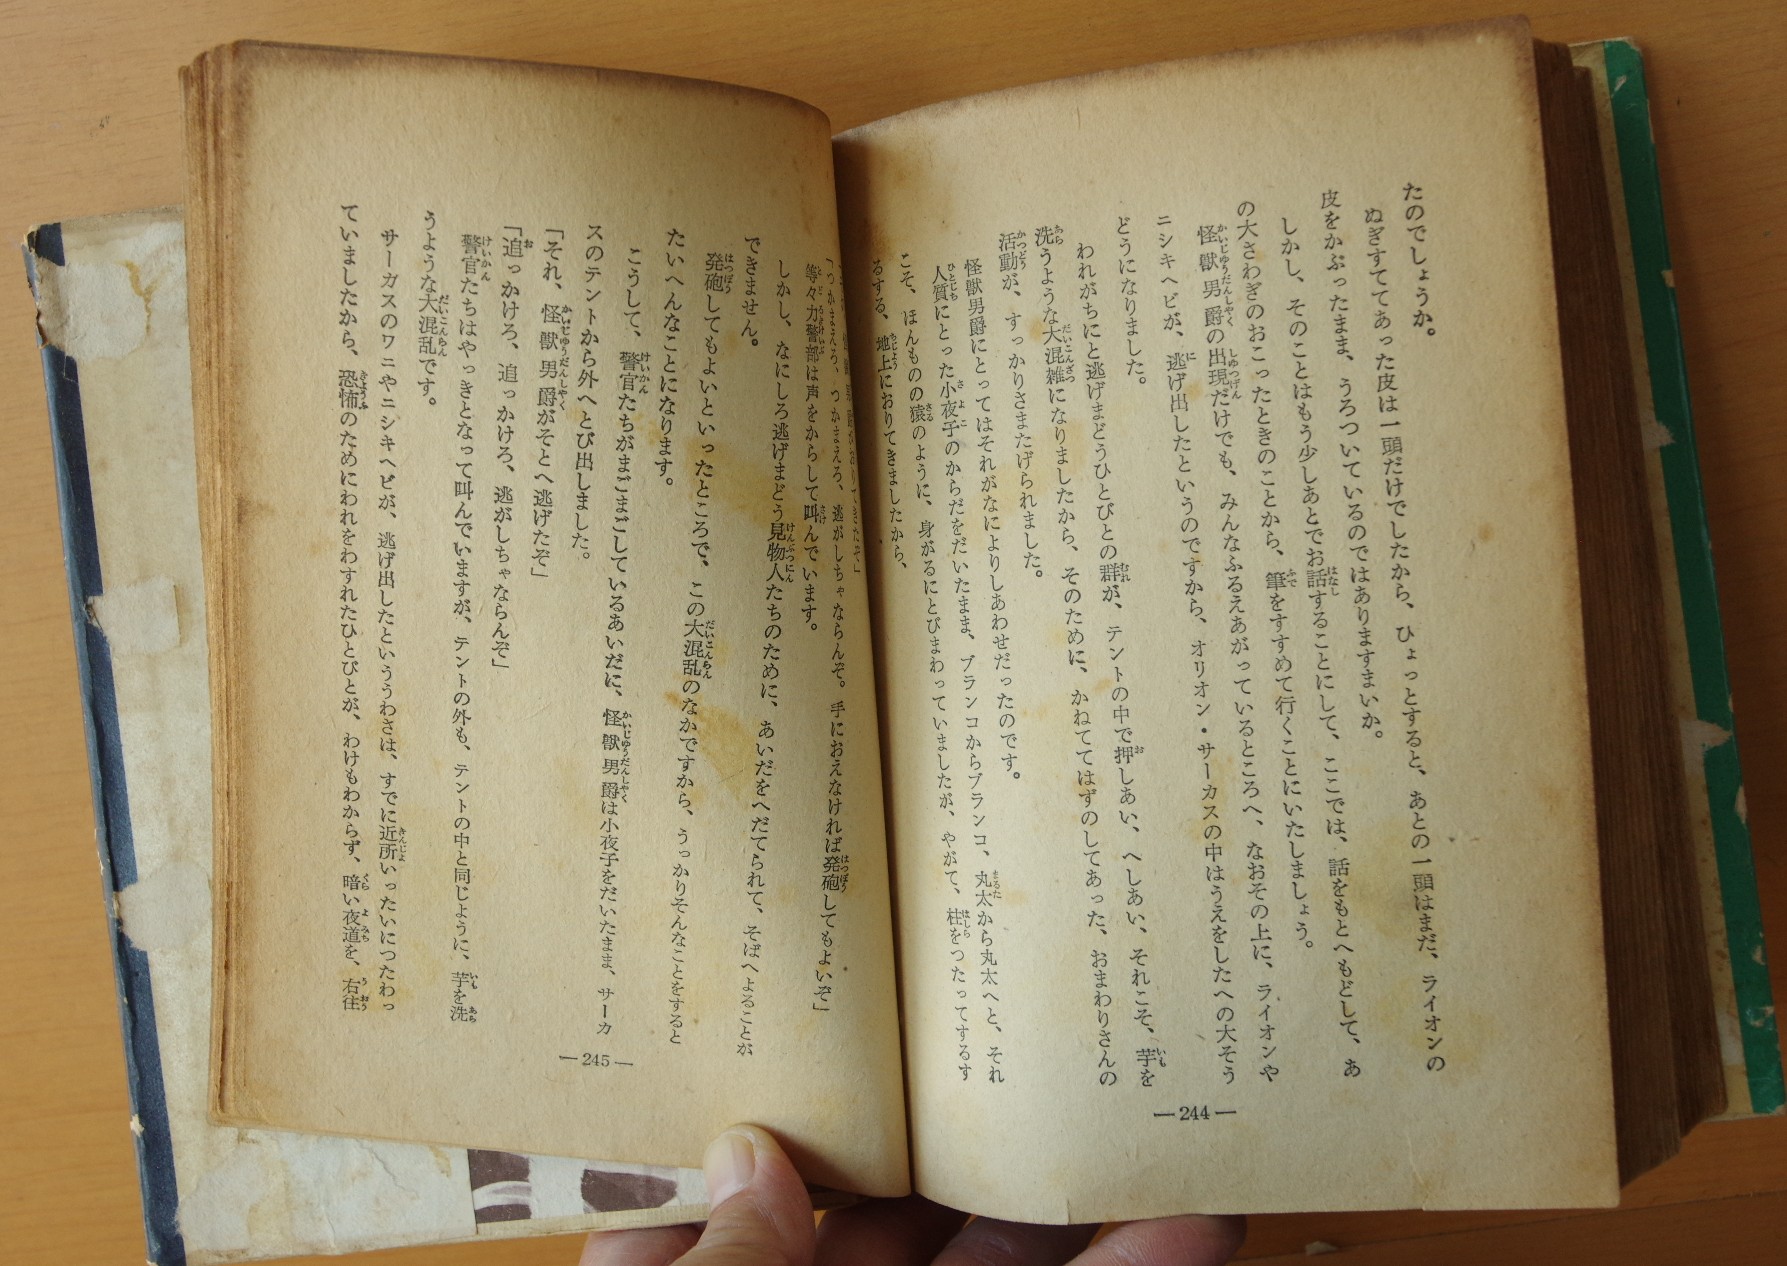 たのでしょうか。
ぬぎすててあった皮は一頭だけでしたから、ひょっとすると、あとの一頭はまだ、ライオンの
皮をかぶったまま、うろついているのではありますまいか。
しかし、そのことはもう少しあとでお話することにして、ここでは、話をもとへもどして、あ
の大さわぎのおこったときのことから、筆をすすめて行くことにいたしましょう。
怪獣男爵の出現だけでも、みんなふるえあがっているところへ、なおその上に、ライオンや
ニシキヘビが、逃げ出したというのですから、オリオン・サーカスの中はうえをしたへの大そう
どうになりました。
われがちにと逃げまどうひとびとの群が、テントの中で押しあい、へしあい、それこそ、芋を
洗うような大混雑になりましたから、そのために、かねててはずのしてあった、おまわりさんの
活動が、すっかりさまたげられました。
怪獣男爵にとってはそれがなによりしあわせだったのです。
人質にとった小夜子のからだをだいたまま、ブランコからブランコ、丸太から丸太へと、それ
こそ、ほんものの猿のように、身がるにとびまわっていましたが、やがて、柱をつたってするす
るする、地上におりてきましたから、
― 244 ―
「つかまえろ、つかまえろ、逃がしちゃならんぞ。手におえなければ発砲してもよいぞ」
等々力警部は声をからして叫んでいます。
しかし、なにしろ逃げまどう見物人たちのために、あいだをへだてられて、そばへよることが
できません。
発砲してもよいといったところで、この大混乱のなかですから、うっかりそんなことをすると
たいへんなことになります。
こうして、警官たちがまごまごしているあいだに、怪獣男爵は小夜子をだいたまま、サーカ
スのテントから外へとび出しました。
「それ、怪獣男爵がそとへ逃げたぞ」
「追っかけろ、追っかけろ、逃がしちゃならんぞ」
警官たちはやっきとなって叫んでいますが、テントの外も、テントの中と同じように、芋を洗
うような大混乱です。
サーガスのワニやニシキヘビが、逃げ出したといううわさは、すでに近所いったいにつたわっ
ていましたから、恐怖のためにわれをわすれたひとびとが、わけもわからず、暗い夜道を、右往
― 245 ―